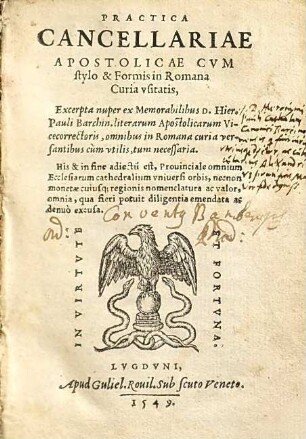 PRACTICA
CANCELLARIAE
APOSTOLICAE CVM
stylo & Formis in Romana
Curia vsitatis,
Excerpta nuper ex Memorabilibus D. Hier.
Pauli Barchin. literarum Apostolicarum Vi-
cecorrectoris, omnibus in Romana curia ver-
santibus cùm vtilis, tum necessaria.
His & in fine adiecti est, Prouinciale omnium
Ecclesiarum cathedralium vniuersi orbis, necnon
monetæ cuiusq; regionis nomenclatura ac valor,
omnia, quæ fieri potuit diligentia emendata ac
denuò excusa.
Conventq
Ord:
IN VIRTVTE
ET FORTVNA.
LVGDVNI,
Apud Guliel. Rouil. Sub scuto Veneto.
1549.